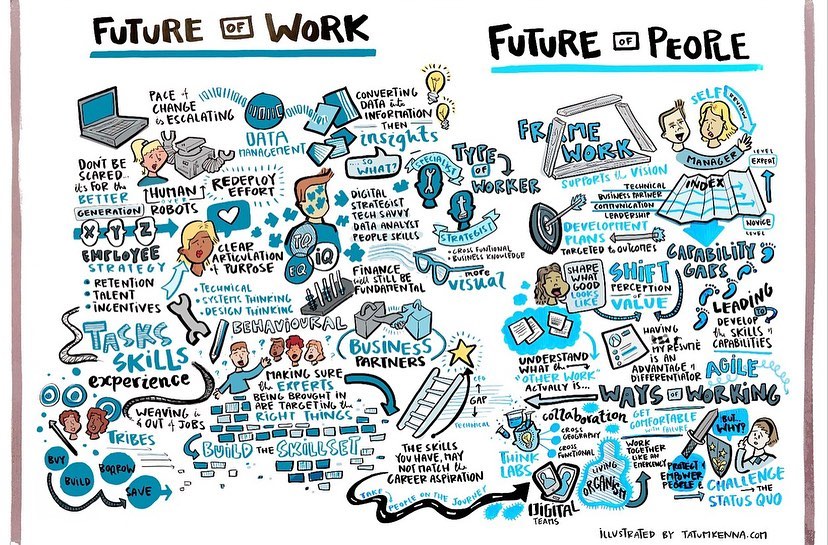 FUTURE OF WORK
PACE +
CHANGE
is ESCALATING
DATA
MANAGEMENT
CONVERTING
DATA into
INFORMATION
THEN
insights
DON'T BE
SCARED...
it's FOR the
BETTER
HUMAN
OVER
ROBOTS
REDEPLOY
EFFORT
...SO
WHAT?
SPECIALIST
TYPE
OF
WORKER
STRATEGIST
GENERATION
X Y Z
EMPLOYEE
STRATEGY
• RETENTION
• TALENT
• INCENTIVES
CLEAR
ARTICULATION
of PURPOSE
• TECHNICAL
• SYSTEMS THINKING
• DESIGN THINKING
TQ
IQ
EQ
DIGITAL
STRATEGIST
TECH SAVVY
DATA ANALYST
PEOPLE SKILLS
• CROSS FUNTIONAL
• BUSINESS KNOWLEDGE
more
visual
FINANCE
will STILL BE
FUNDAMENTAL
TASKS
SKILLS
experience
BEHAVIOURAL
BUSINESS
PARTNERS
MAKING SURE
the EXPERTS
BEING BROUGHT IN
ARE TARGETING the
RIGHT THINGS
BUILD THE SKILLSET
WEAVING in
+ OUT of JOBS
TRIBES
BUY
BUILD
BORROW
SAVE
CFO
GAP
TECHNICAL
THE SKILLS
YOU HAVE, MAY
NOT MATCH the
CAREER ASPIRATION
TAKE PEOPLE ON THE JOURNEY
FUTURE OF PEOPLE
FRAME
WORK
SUPPORTS the VISION
SELF
REVIEW
MANAGER
LEVEL
EXPERT
INDEX
NOVICE
LEVEL
TECHNICAL
BUSINESS PARTNER
COMMUNICATION
LEADERSHIP
DEVELOPMENT
PLANS
TARGETED to OUTCOMES
CAPABILITY
GAPS
SHARE
WHAT
GOOD
LOOKS
LIKE
SHIFT
PERCEPTION
OF
VALUE
LEADING
DEVELOP
the SKILLS +
CAPABILITIES
UNDERSTAND
WHAT the
"OTHER WORK"
ACTUALLY IS...
HAVING
MY RESUME
IS AN
ADVANTAGE +
DIFFERENTIATOR
AGILE
WAYS OF WORKING
THINK
LABS
collaboration
CROSS
GEOGRAPHY
CROSS
FUNCTIONAL
GET
COMFORTABLE
with FAILURE
LIVING
ORGANISM
WORK
TOGETHER
LIKE AN
EMERGENCY
DIGITAL
TEAMS
PROTECT +
EMPOWER
PEOPLE
BUT...
WHY?
CHALLENGE
THE
STATUS QUO
ILLUSTRATED BY TATUMKENNA.COM